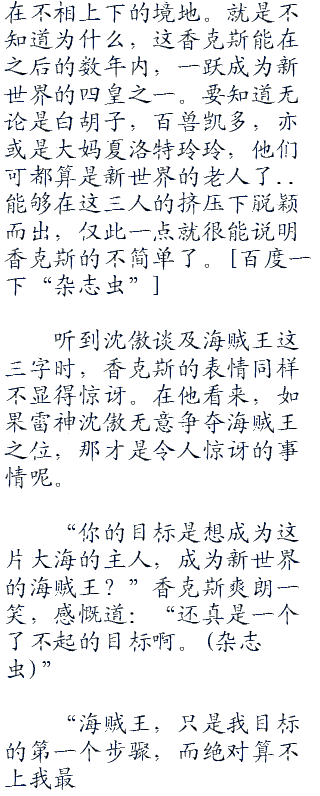 在不相上下的境地。就是不
知道为什么，这香克斯能在
之后的数年内，一跃成为新
世界的四皇之一。要知道无
论是白胡子，百兽凯多，亦
或是大妈夏洛特玲玲，他们
可都算是新世界的老人了..
能够在这三人的挤压下脱颖
而出，仅此一点就很能说明
香克斯的不简单了。[百度一
下“杂志虫”]
听到沈傲谈及海贼王这
三字时，香克斯的表情同样
不显得惊讶。在他看来，如
果雷神沈傲无意争夺海贼王
之位，那才是令人惊讶的事
情呢。
“你的目标是想成为这
片大海的主人，成为新世界
的海贼王？”香克斯爽朗一
笑，感慨道：“还真是一个
了不起的目标啊。(杂志
虫)”
“海贼王，只是我目标
的第一个步骤，而绝对算不
上我最